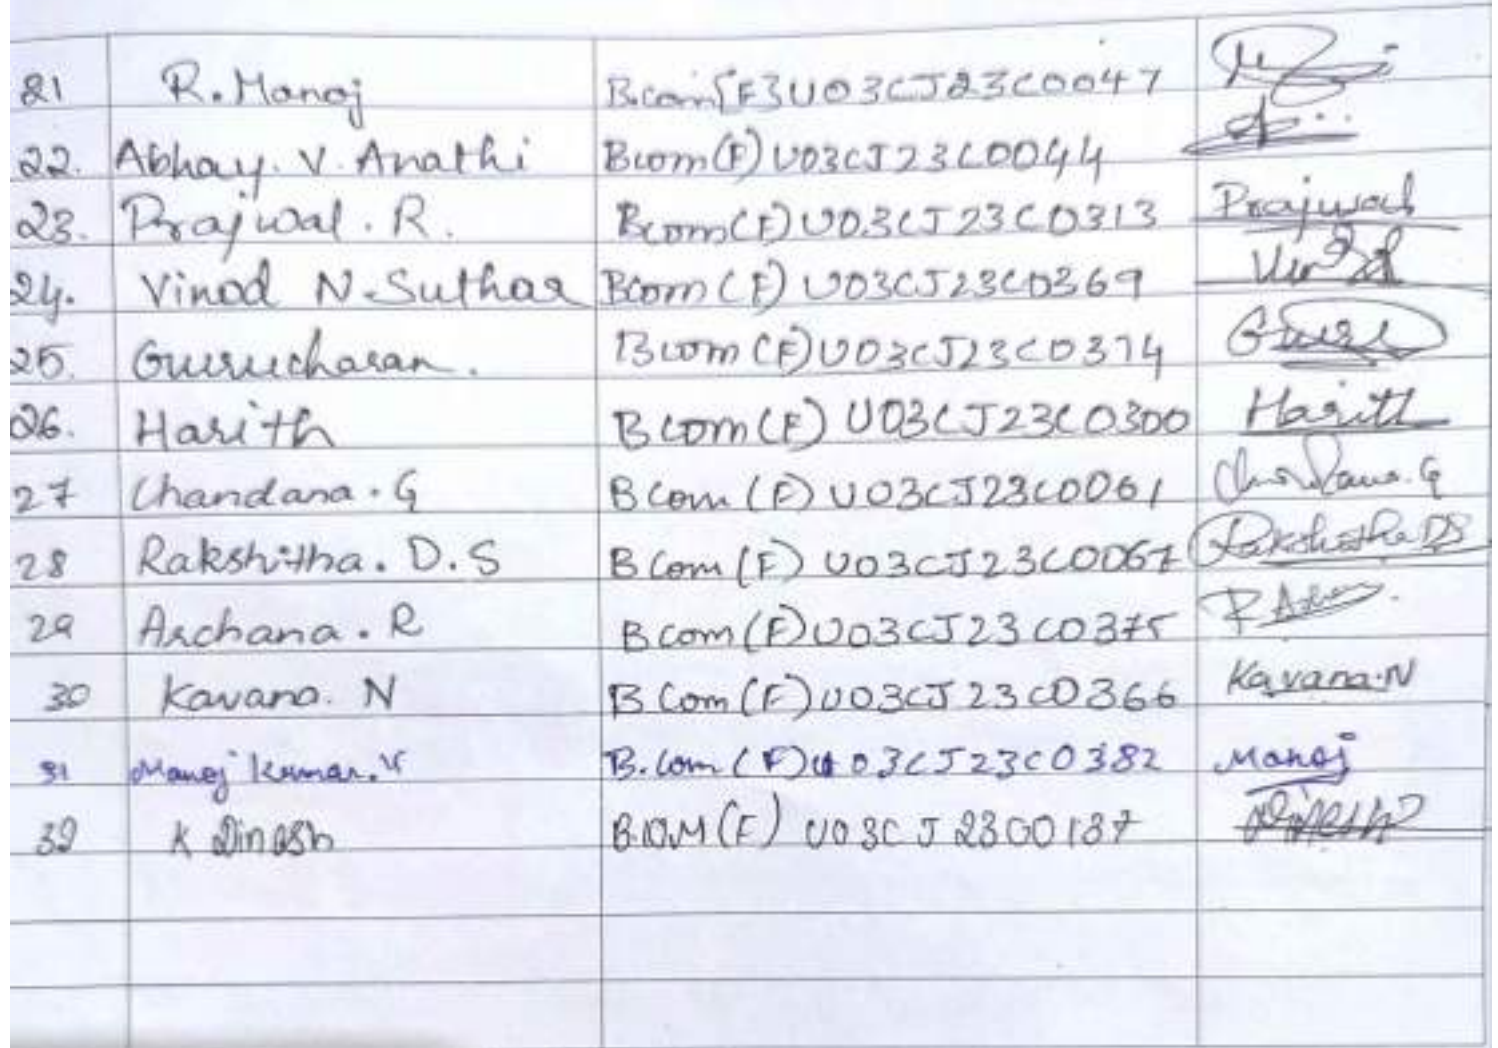 21 R. Manoj Bcom[F] U03CJ23C0047
22. Abhay. V. Anathi Bcom(F) U03CJ23C0044
23. Prajwal. R. Bcom(F) U03CJ23C0313 Prajwal
24. Vinod N. Suthar Bcom (F) U03CJ23C0369
25. Gurucharan. Bcom (F) U03CJ23C0374 Guru
26. Harith Bcom (F) U03CJ23C0300 Harith
27 Chandana. G BCom (F) U03CJ23C0061 Chandana. G
28 Rakshitha. D. S BCom (F) U03CJ23C0067 Rakshitha DS
29 Archana. R Bcom (F) U03CJ23C0375
30 Kavana. N BCom (F) U03CJ23C0366 Kavana. N
31 Manoj Kumar. V B.Com (F) U03CJ23C0382 Manoj
32 K Dinesh B.COM (F) U03CJ23C00137 Dinesh